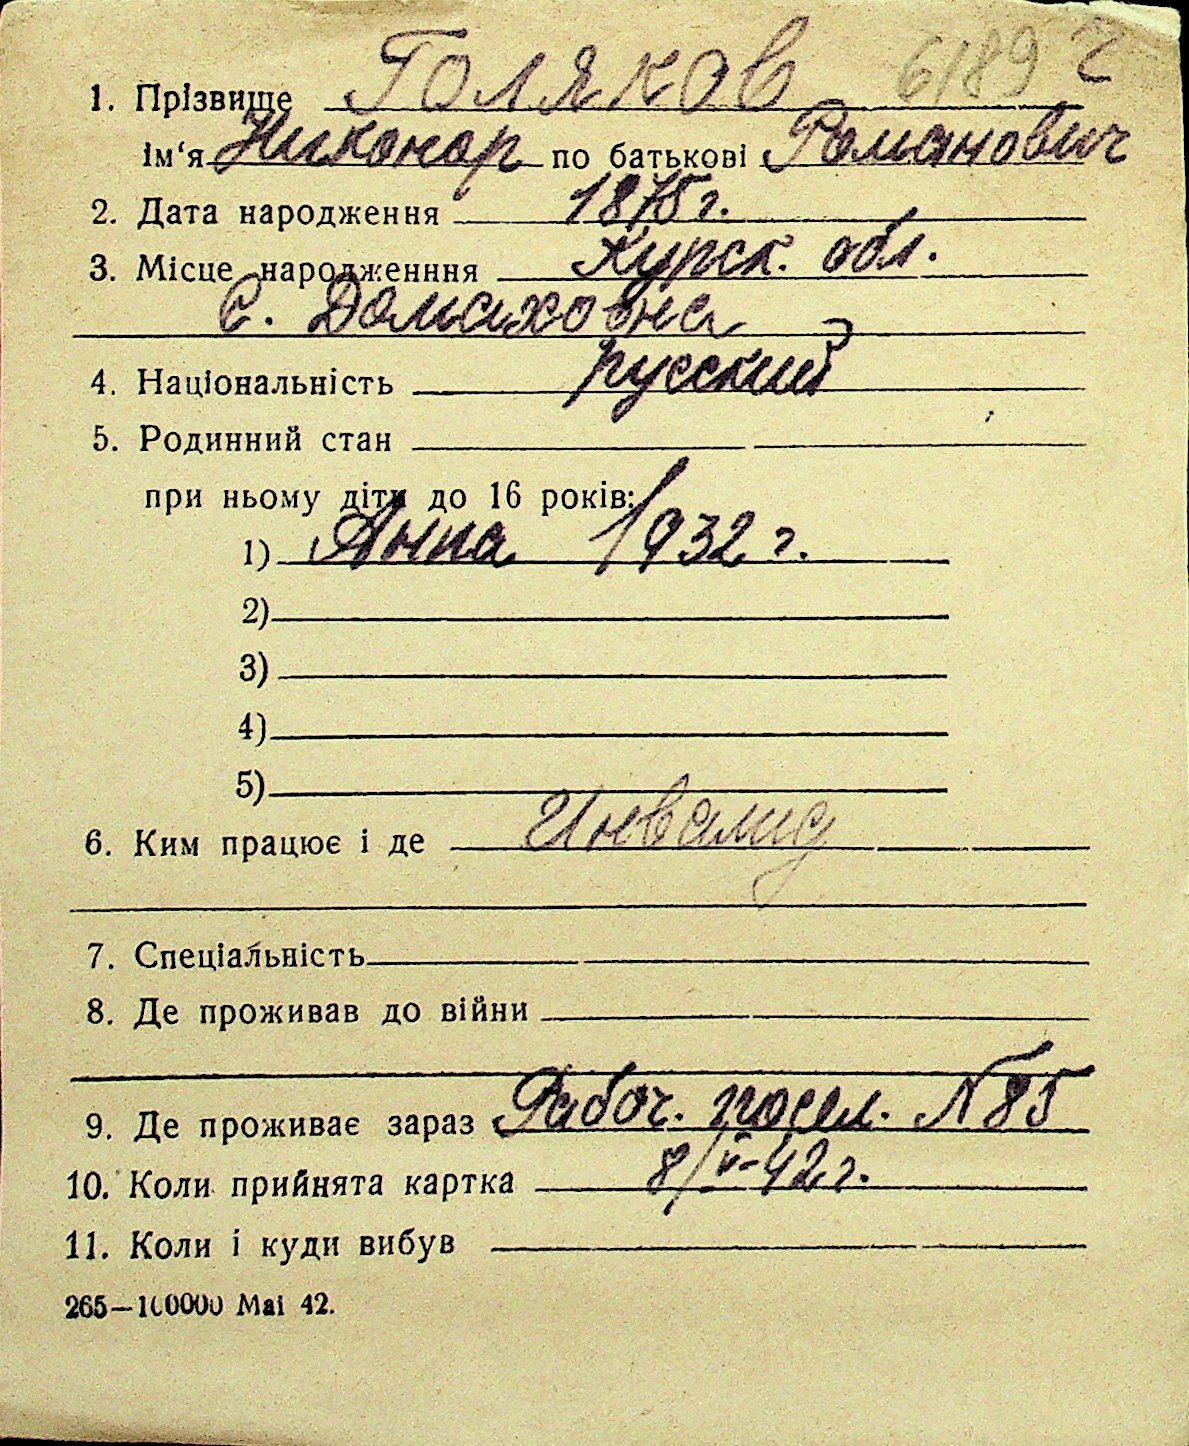 6189 г
1. Прізвище Голяков
ім‘я Никонор по батькові Романович
2. Дата народження 1875 г.
3. Місце народженння Курск. обл.
с. Домаховна
4. Національність русский
5. Родинний стан
при ньому діти до 16 років:
1) Анна 1932 г.
2)
3)
4)
5)
6. Ким працює і де Инвалид
7. Спеціальність
8. Де проживав до війни
9. Де проживає зараз Рабоч. посел. N 85
10. Коли прийнята картка 8/V-42 г.
11. Коли і куди вибув
265—100000 Mai 42.